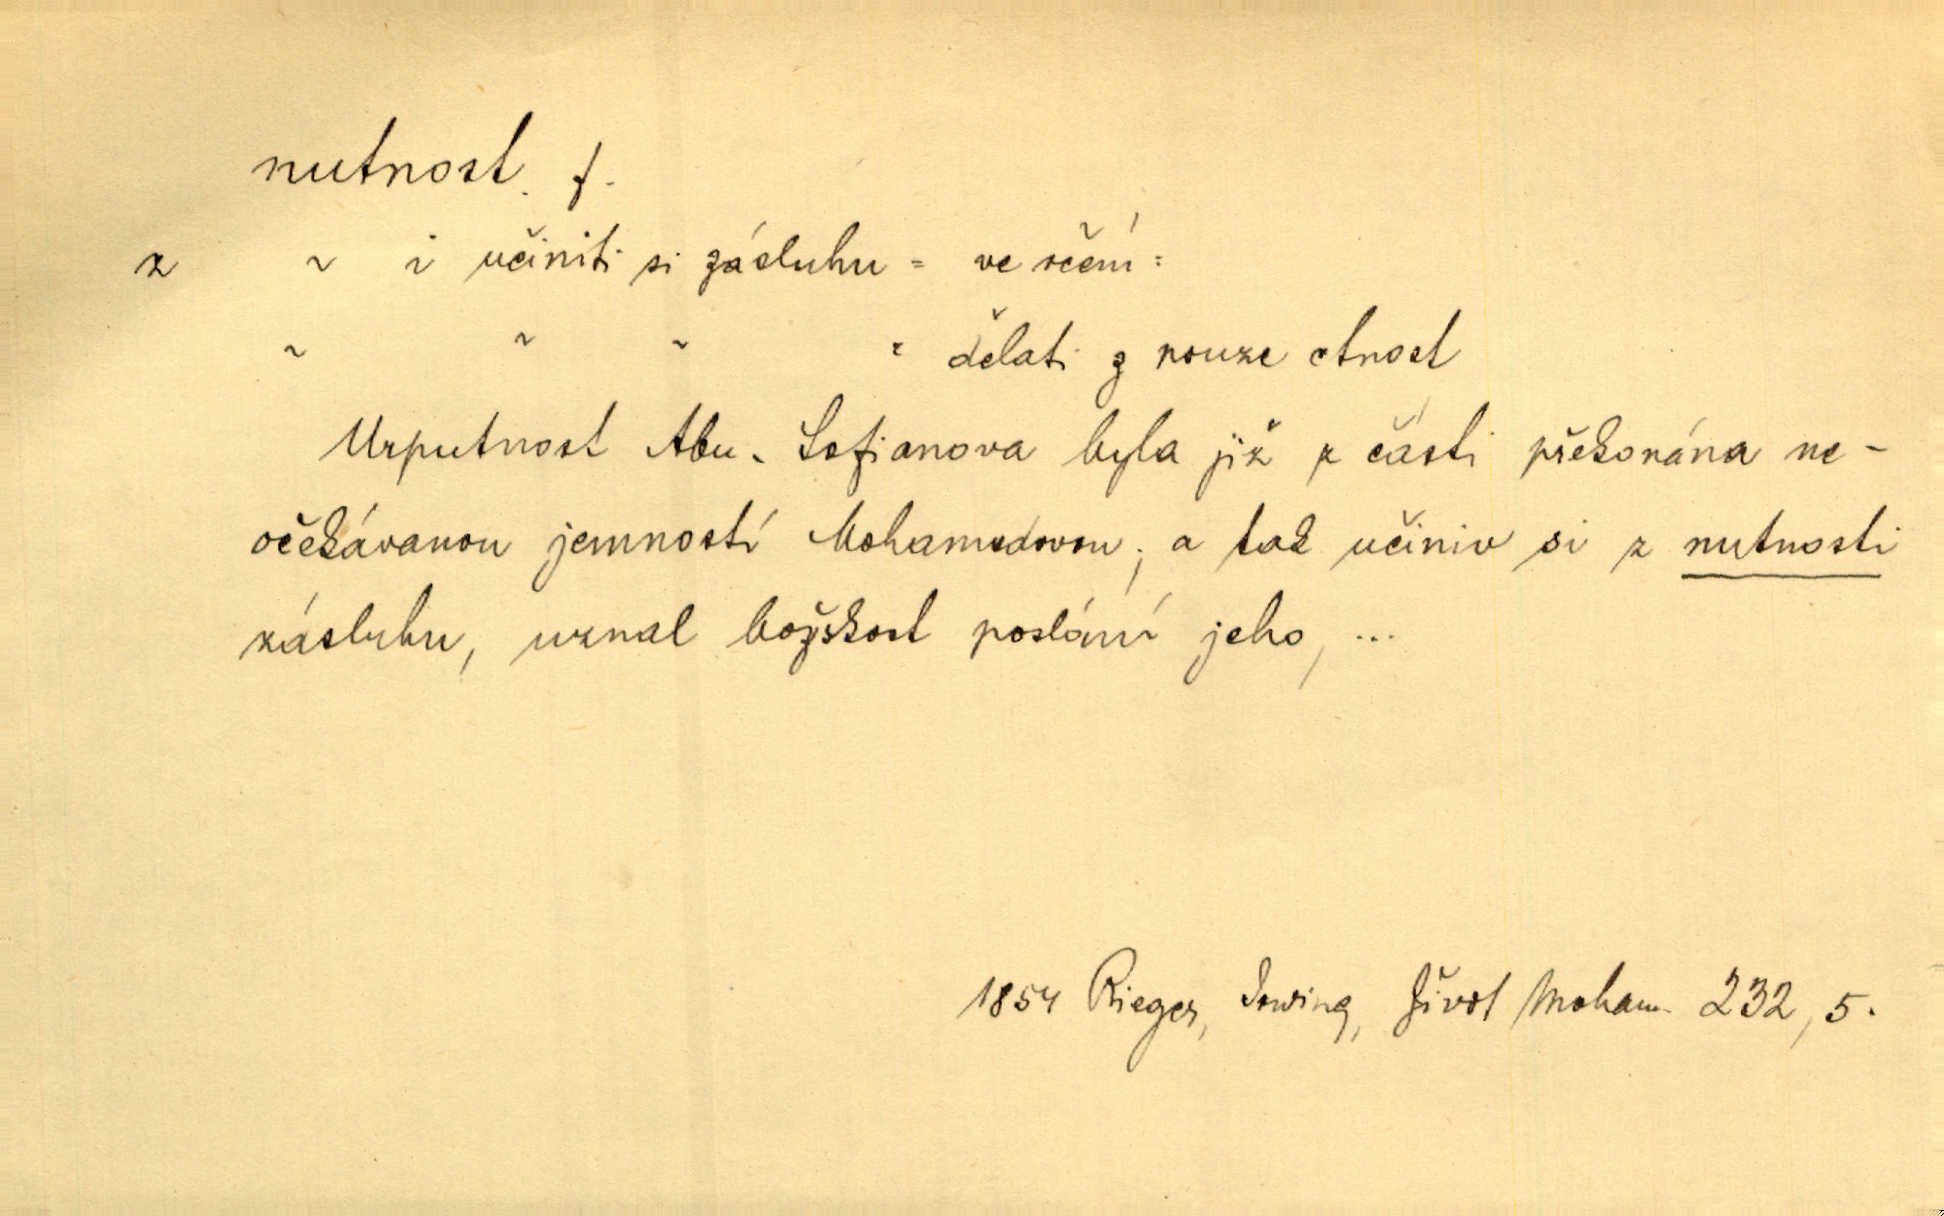 nutnost. f.
z ~ i učiniti si zásluhu = ve rčení:
~ ~ ~ " dělati z nouze ctnost
Urputnost Abu-Sofianova byla již z části překonána ne-
očekávanou jemností Mohamedovou; a tak učiniv si z nutnosti
zásluhu, uznal božskost poslání jeho, ...
1854 Rieger, Irwing, Život Moham. 232, 5.